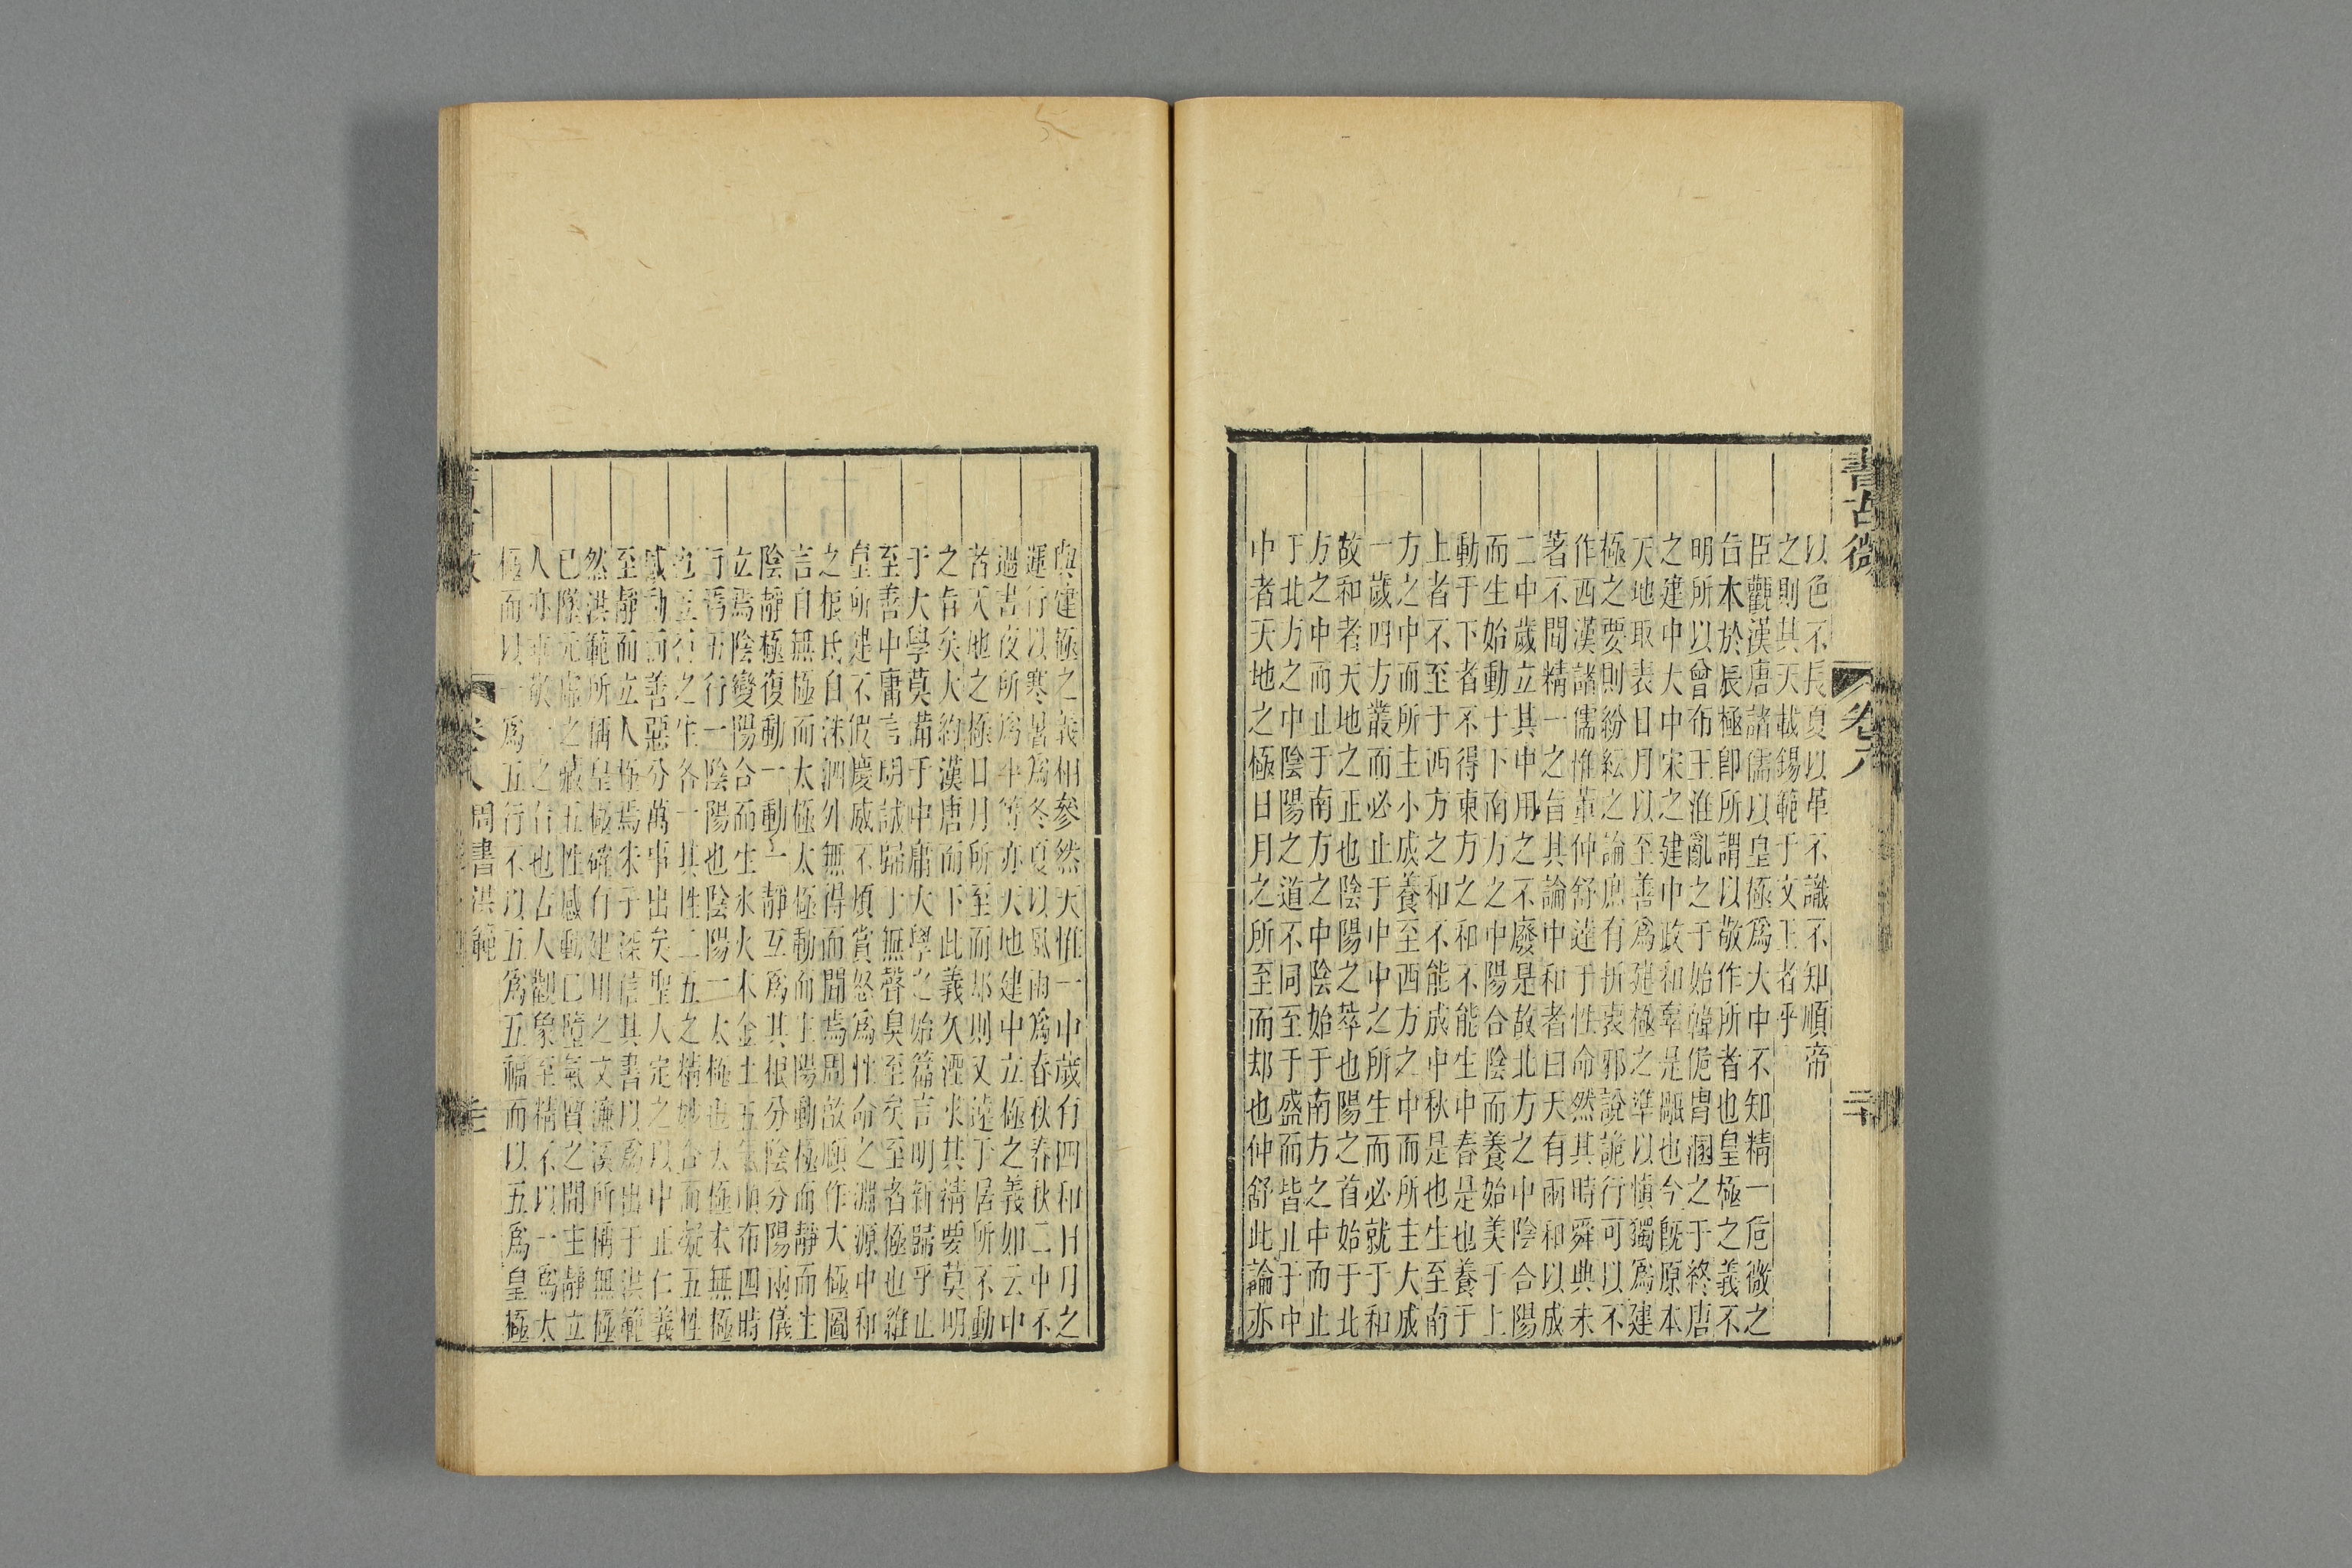 書古微
卷八
以色不長夏以革不識不知順帝
之則其天載錫範于文王者乎
臣觀漢唐諸儒以皇極爲大中不知精一危微之
台木於辰極卽所謂以敬作所者也皇極之義不
明所以曾布王淮亂之于始韓侂冑溷之于終唐
之建中大中宋之建中政和羣是驅也今既原本
天地取表日月以至善爲建極之準以愼獨爲建
極之要則紛紜之論庶有折衷邪說詭行可以不
作西漢諸儒惟董仲舒達于性命然其時舜典未
著不聞精一之旨其論中和者曰天有兩和以成
二中歲立其中用之不廢是故北方之中陰合陽
而生始動于下南方之中陽合陰而養始美于上
動于下者不得東方之和不能生中春是也養于
上者不至于西方之和不能成中秋是也生至南
方之中而所主小成養至西方之中而所主大成
一歲四方叢而必止于中中之所生而必就于和
故和者天地之正也陰陽之萃也陽之首始于北
方之中而止于南方之中陰始于南方之中而止
于北方之中陰陽之道不同至于盛而皆止于中
中者天地之極日月之所至而却也仲舒此論亦
與建極之義相參然天惟一中歲有四和日月之
運行以寒暑爲冬夏以風雨爲春秋春秋二中不
過晝夜所爲平等亦天地建中立極之義如云中
者天地之極日月所至而却則又遠于居所不動
之旨矣大約漢唐而下此義久湮求其精要莫明
于大學莫備于中庸大學之始篇言明新歸乎止
至善中庸言明誠歸于無聲臭至矣至者極也維
皇所建不假慶威不煩賞怒爲性命之淵源中和
之根氐自洙泗外無得而聞焉周敦頤作太極圖
言自無極而太極太極動而生陽動極而靜靜而生
陰靜極復動一動一靜互爲其根分陰分陽兩儀
立焉陰變陽合而生水火木金土五氣順布四時
行焉五行一陰陽也陰陽一太極也太極本無極
也五行之生各一其性二五之精妙合而凝五性
感動而善惡分萬事出矣聖人定之以中正仁義
至靜而立人極焉朱子深信其書以爲出于洪範
然洪範所偁皇極確有建明之文濂溪所稱無極
已墜元虛之藏五性感動已墮氣質之閒主靜立
人亦非敬一之旨也古人觀象至精不以一爲太
極而以一爲五行不以五爲五福而以五爲皇極
周書洪範